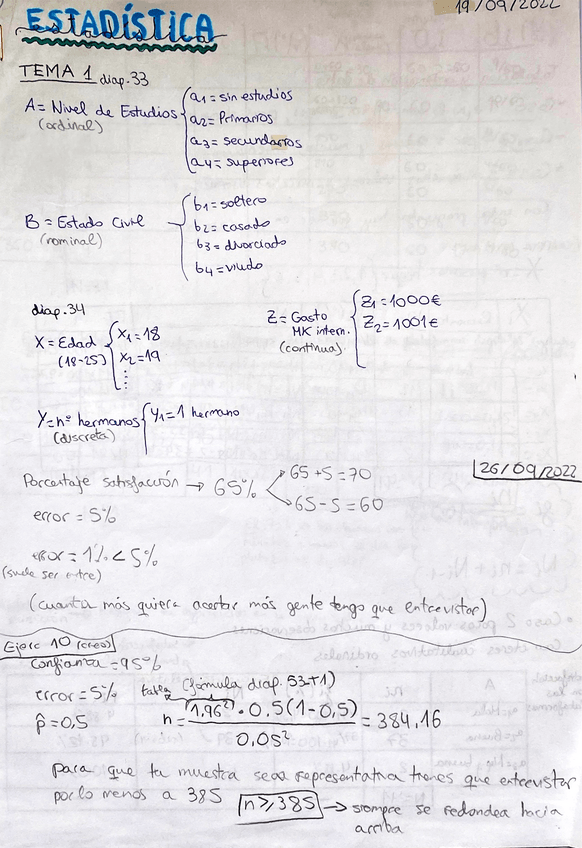 19/09/2022
ESTADÍSTICA
estadística
TEMA 1 diap.33
A = Nivel de Estudios
(ordinal)
a1 = sin estudios
a2 = Primarios
a3 = secundarios
a4 = superiores
B = Estado Civil
(nominal)
b1 = soltero
b2 = casado
b3 = divorciado
b4 = viudo
diap.34
X = Edad
(18-25)
x1 = 18
x2 = 19
⋮
Z = Gasto
MK intern.
(continua).
Z1 = 1000€
Z2 = 1001€
Y = nº hermanos
(discreta)
y1 = 1 hermano
26/09/2022
Porcentaje satisfacción → 65%
65 + 5 = 70
65 - 5 = 60
error = 5%
error = 1% < 5%
(suele ser entre)
(cuanta más quiera acertar más gente tengo que entrevistar)
Ejerc 10 (creo)
Confianza = 95%
error = 5% tabla (fórmula diap. 53+1)
p̂ = 0,5
n = 1,96² · 0,5(1-0,5) / 0,05² = 384,16
para que tu muestra sea representativa tienes que entrevistar
por lo menos a 385 n ≥ 385 → siempre se redondea hacia
arriba